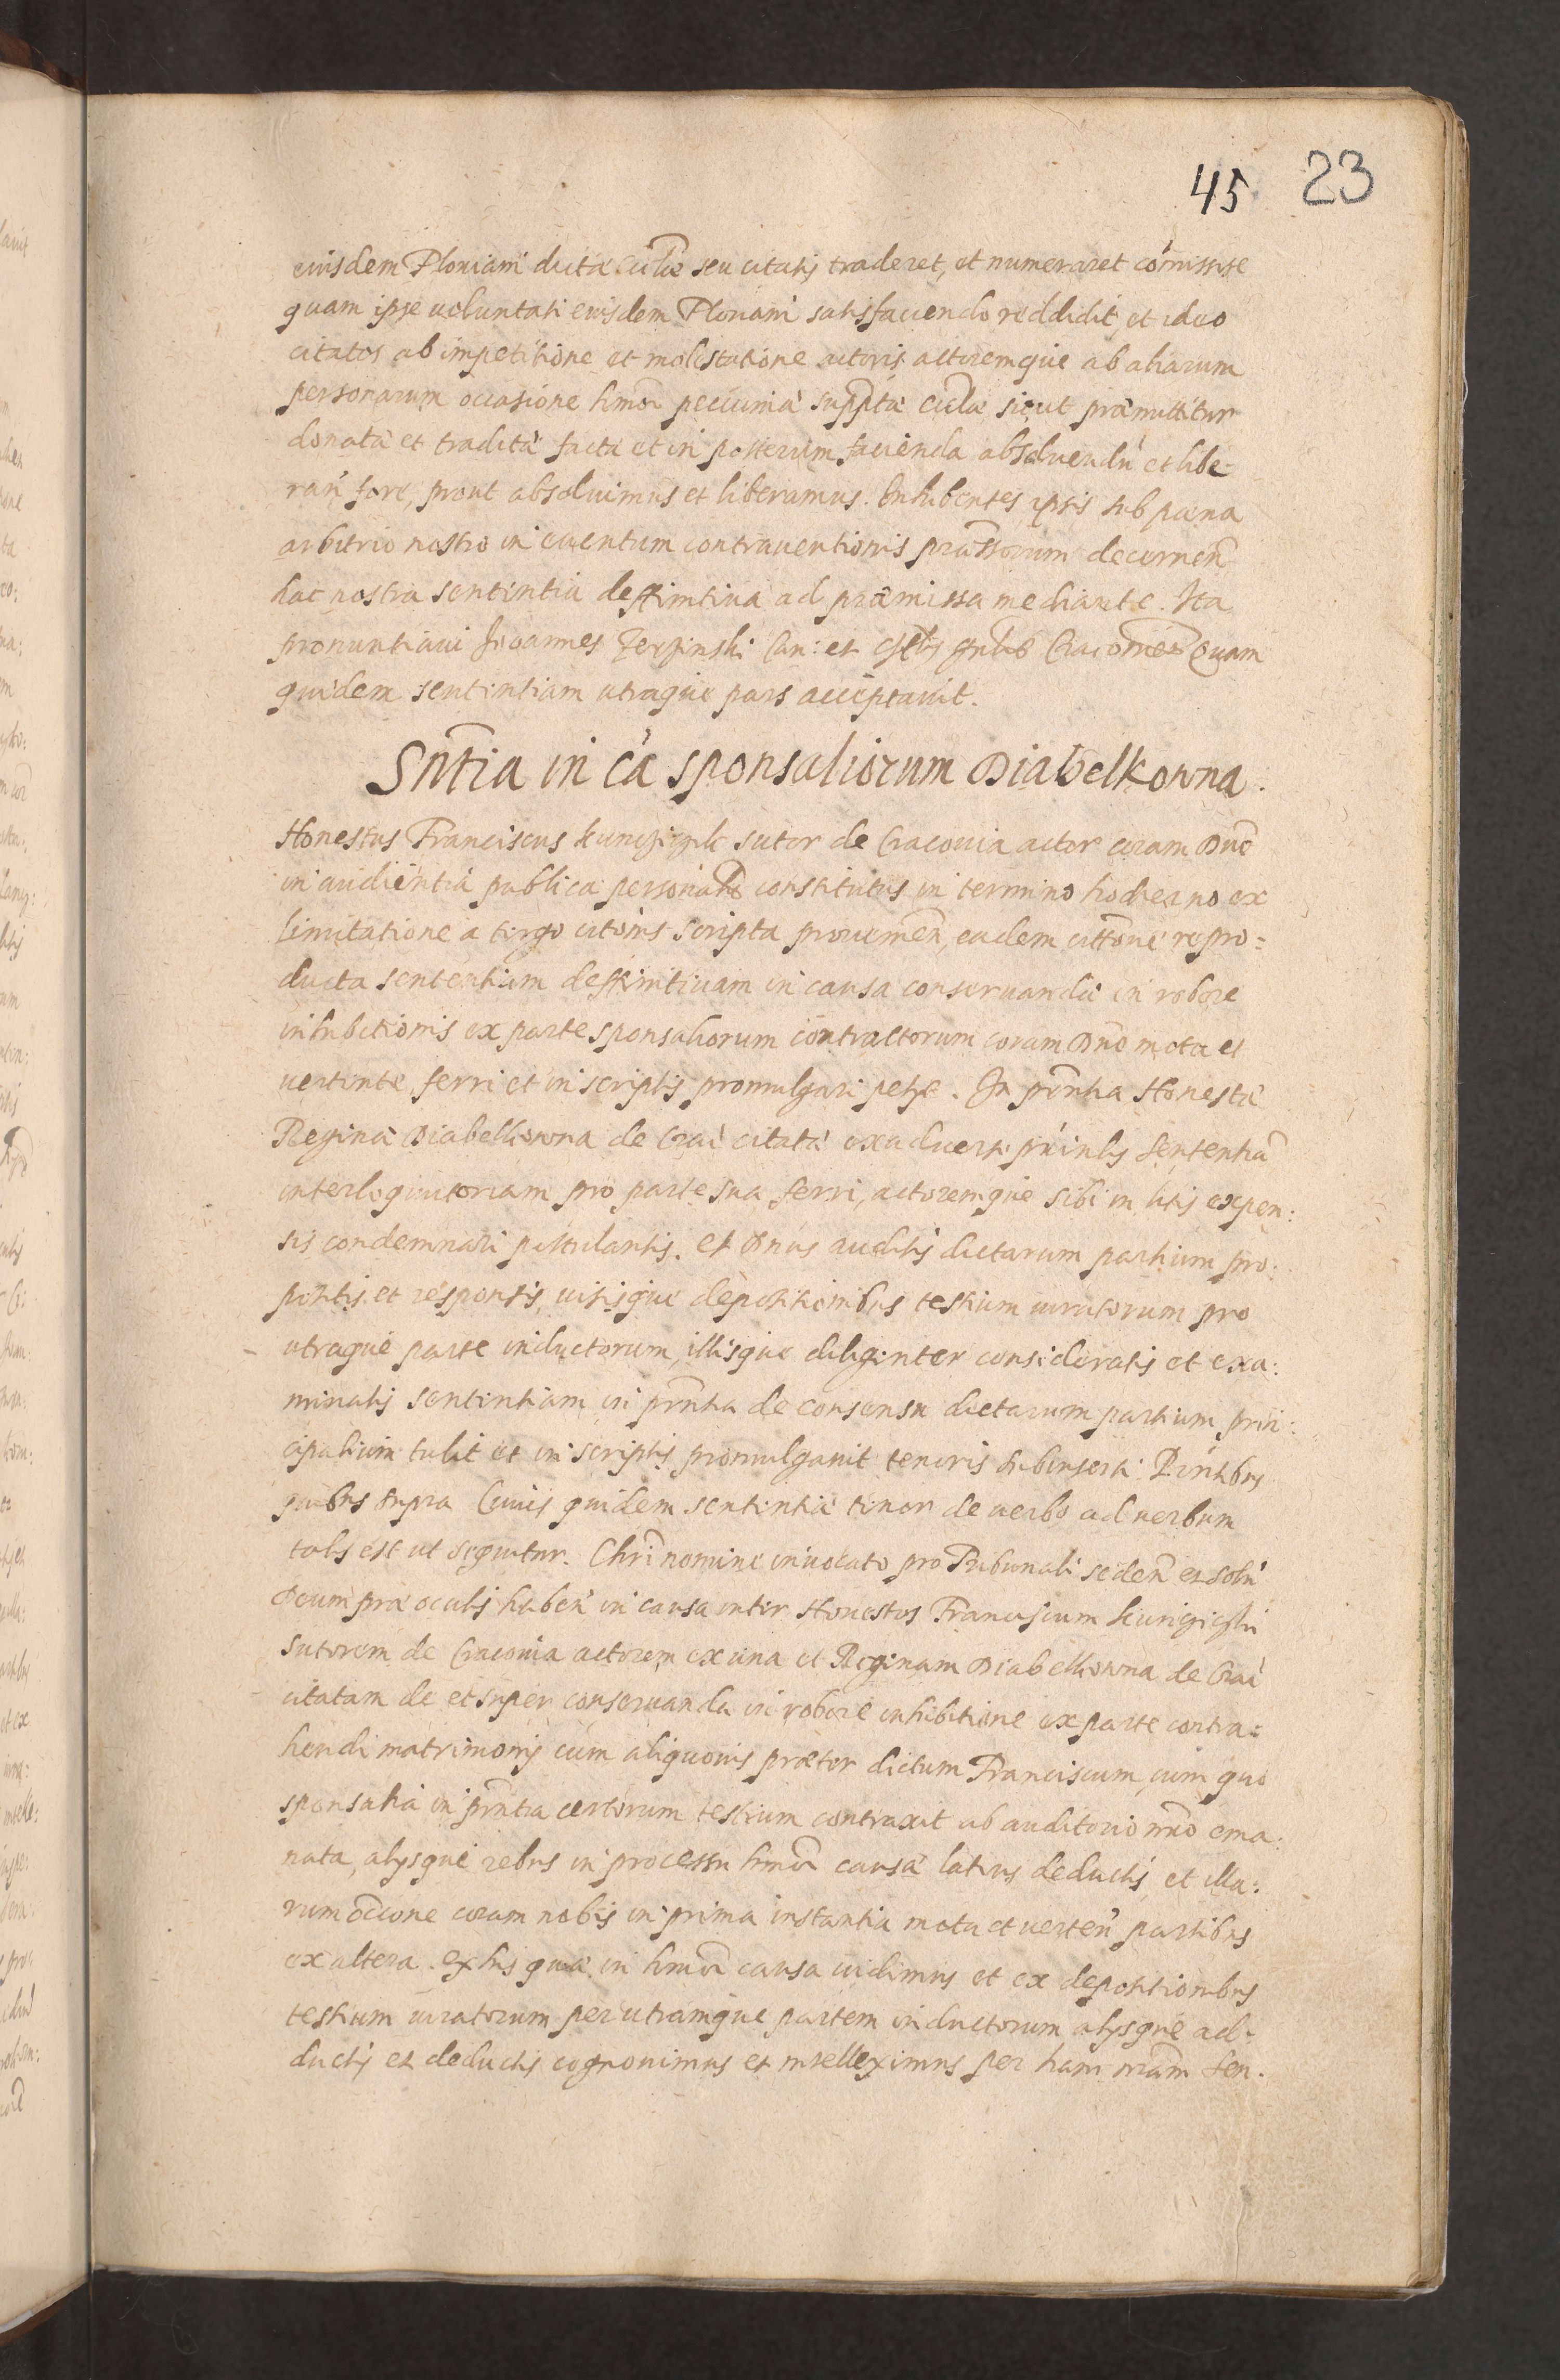 45 23
eiusdem Ploniani dictae seu citatis traderet, et numeraret comissise
quam ipse uoluntati eiusdem Ploniani satisfaciendo reddidit et ideo
citatos ab impetitione et molestatione actoris actoremque ab aliarum
personarum occasione hmoi pecuniae suppta sicut praemittitur
donatae et traditae facta et in posterum facienda absoluendū et libe-
ran fore, prout absoluimus et liberamus. Inhibentes ipsis sub paena
arbitrio nostro in euentum contrauentionis praessorum decernen
hac nostra sententia deffinitiua ad praemissa mediante. Ita
pronuntiaui Joannes Can: et Quam
quidem sententiam utraque pars acceptauit.
Sntia in cā sponsaliorum Diabelkowna.
Honestus Franciscus sutor de Cracouia actor coram Dno
in audientia publica personalr constitutus in termino hodierno ex
limitatione a tergo citōnis scripta prouenien, eadem cittone repro=
ducta sententiam deffinitiuam in causa conseruandae in robore
inhibitionis ex parte sponsaliorum contractorum coram Dno mota et
uertente ferri et in scriptis promulgari petijt. In pñtia Honestae
Regina Diabelkowna de Crac̄ citata ex aduerso pñtis sententiā
interloquutoriam pro parte sua ferri, actoremque sibi in litis expen:
sis condemnari postulantis. Et Dnus auditis dictarum partium pro:
positis et responsis, uisisque depositionibus testium iuratorum pro
utraque parte inductorum, illisque diligenter consideratis et exa:
minatis sententiam in pñtia de consensu dictarum partium prin:
cipalium tulit et in scriptis promulgauit tenoris subinserti. Pñtibus
quibus supra Cuius quidem sententiae tenor de uerbo ad uerbum
talis est ut sequitur. Chri nomine inuocato pro Tribunali seden et solū
Deum prae oculis haben in causa inter Honestos Franciscum
Sutorem de Cracouia actorem ex una et Reginam Diabelkowna de Crac̄
citatam de et super conseruanda in robore inhibitione ex parte contra=
hendi matrimonij cum aliquouis praeter dictum Franciscum, cum quo
sponsalia in pñtia certorum testium contraxit ab auditorio nro ema:
nata, alijsque rebus in processu hmoi causae latius deductis, et illa:
rum occone coram nobis in prima instantia mota et uerten partibus
ex altera. Ex his quae in hmoi causa uidimus et ex depositionibus
testium iuratorum per utramque partem inductorum alijsque ad-
ductis et deductis cognouimus et intelleximus per hanc nram sen-